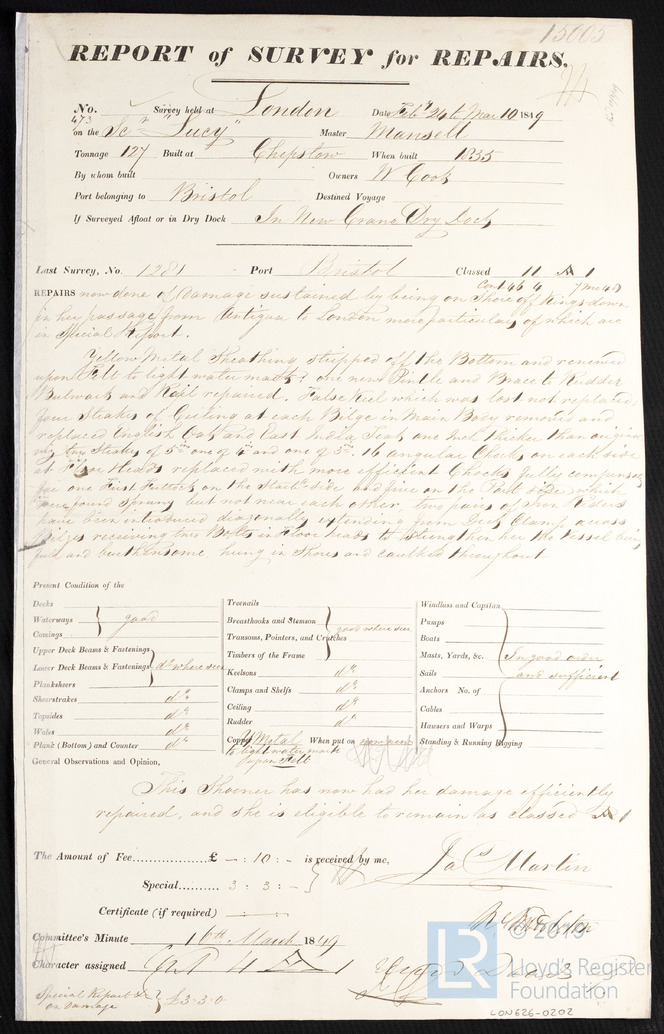 15005
REPORT of SURVEY for REPAIRS,
No. 473 Survey held at London Date Feby 24 to Mar 10 1849
on the Scr "Lucy" Master Mansell
Tonnage 127 Built at Chepstow When built 1835
By whom built Owners W Cook
Port belonging to Bristol Destined Voyage
If Surveyed Afloat or in Dry Dock In New Crane Dry Dock
Last Survey, No. 1281 Port Bristol Classed 11 Æ 1
REPAIRS now done of Damage sustained by being on Shore off Kingsdown
in her passage from Antigua to London more particulars of which are
in Special Report.
Yellow Metal Sheathing stripped off the Bottom and renewed
upon Felt to light water mark; one new Pintle and Brace to Rudder
Bulwark and Rail repaired. False Keel which was lost not replaced,
Four Strakes of Ceiling at each Bilge in Main Body removed and
replaced English Oak and East India Teak one Inch thicker than
two Strakes of 5in one of 4in and one of 3in. 16 angular Chocks on each side
at Floor Heads replaced with more efficient Chocks
one First Futtock on the Starbd side and five on the Port side which
were found sprung but not near each other, two pairs of Iron Riders
have been introduced diagonally extending from Clamp across
Bilges receiving two Bolts in Floor heads to strengthen her the Vessel being
full and burthensome hung in Shores and caulked throughout
Present Condition of the
Decks
Waterways good
Comings
Upper Deck Beams & Fastenings
Lower Deck Beams & Fastenings do where seen
Planksheers
Sheerstrakes do
Topsides do
Wales do
Plank (Bottom) and Counter do
Treenails
Breasthooks and Stemson good where seen
Transoms, Pointers, and Crutches
Timbers of the Frame
Keelsons do
Clamps and Shelfs do
Ceiling do
Rudder do
Copper Y Metal When put on
to light water mark
upon Felt
Windlass and Capstan
Pumps
Boats
Masts, Yards, &c. In good order
Sails and sufficient
Anchors No. of
Cables
Hausers and Warps
Standing & Running Rigging
General Observations and Opinion,
This Shooner has now had her damage efficiently
repaired, and she is eligible to remain as classed Æ 1
The Amount of Fee £ – : 10 : – is received by me,
Special 3 : 3 : –
Jas Martin
Certificate (if required)
Committee's Minute 16th March 1849
Character assigned Æ 1
Special Report &c
on Damage £3-3-0
LR
© 2019
Lloyd's Register
Foundation
LON626-0202